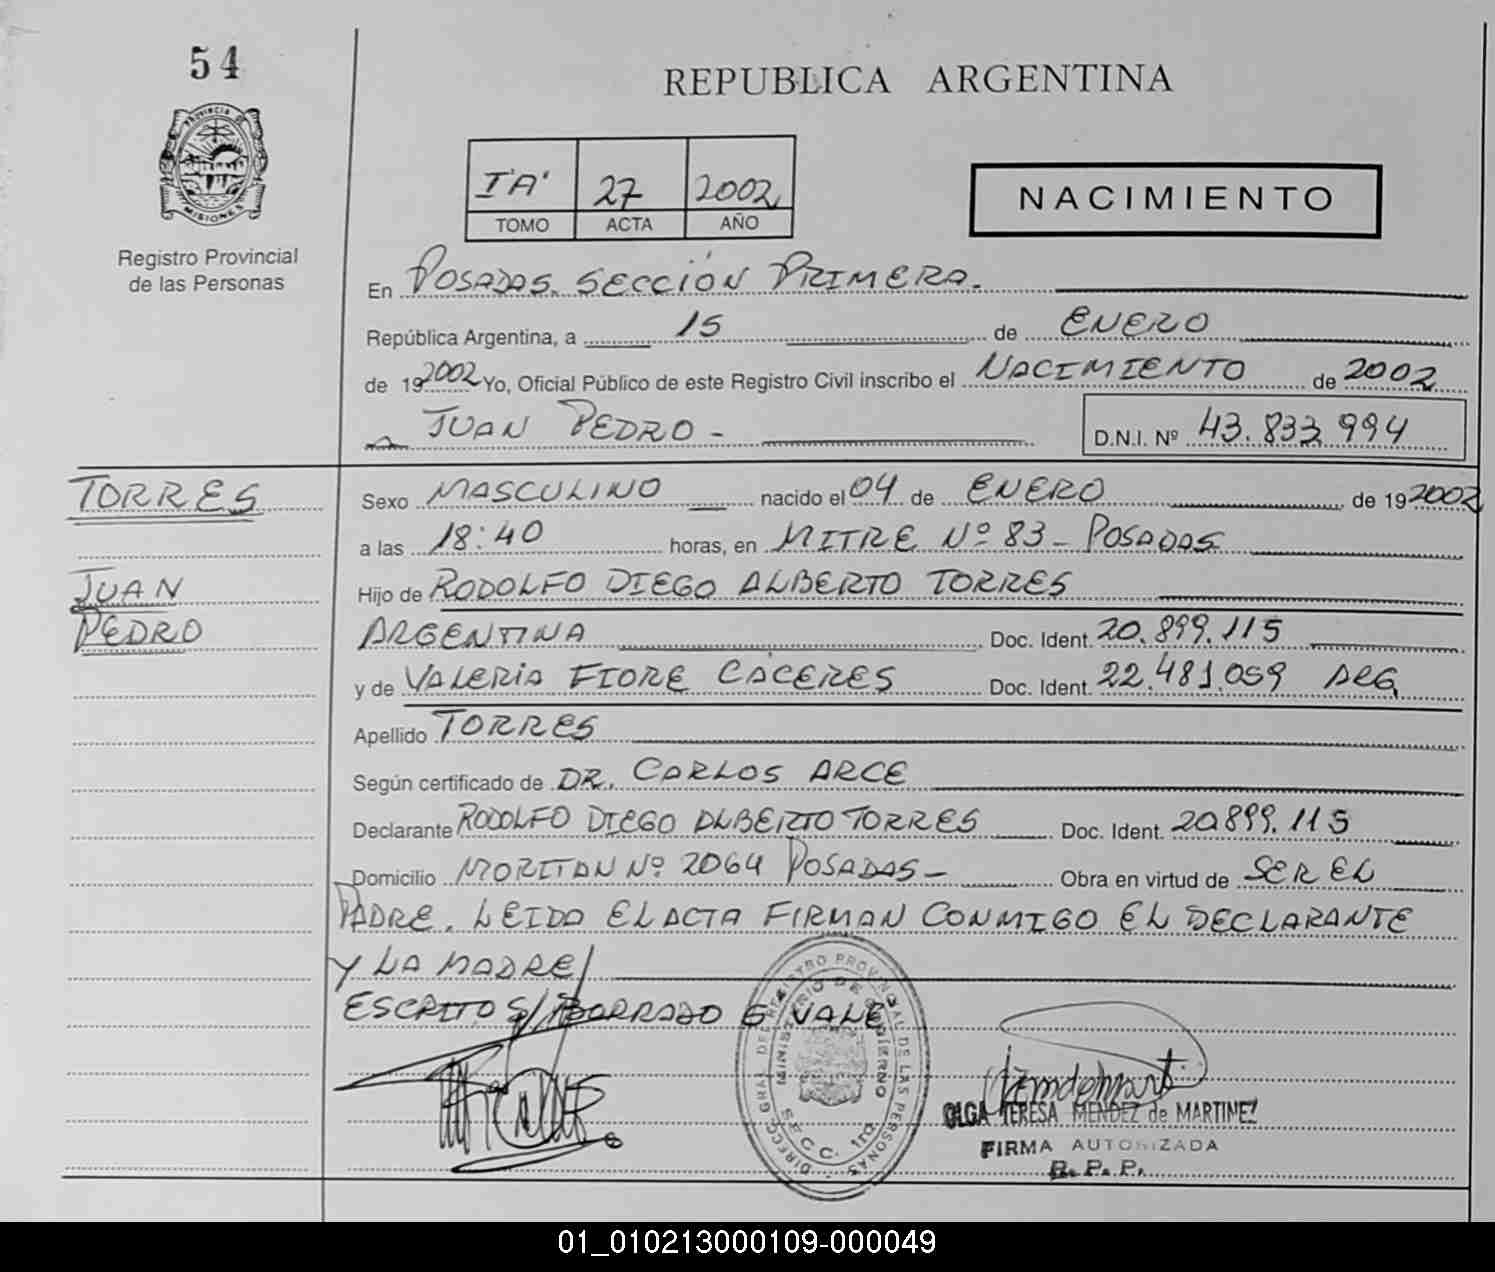 54
REPUBLICA ARGENTINA
PROVINCIA DE
MISIONES
Registro Provincial
de las Personas
I "A" 27 2002
TOMO ACTA AÑO
NACIMIENTO
En POSADAS. SECCIÓN PRIMERA.
República Argentina, a 15 de ENERO
de 19 2002 Yo, Oficial Público de este Registro Civil inscribo el NACIMIENTO de 2002
A JUAN PEDRO -
D.N.I. Nº 43.833.994
TORRES
JUAN
PEDRO
Sexo MASCULINO nacido el 04 de ENERO de 19 2002
a las 18:40 horas, en MITRE Nº 83 - POSADAS
Hijo de RODOLFO DIEGO ALBERTO TORRES
ARGENTINA Doc. Ident. 20.899.115
y de VALERIA FIORE CÁCERES Doc. Ident. 22.481.059 ARG
Apellido TORRES
Según certificado de DR. CARLOS ARCE
Declarante RODOLFO DIEGO ALBERTO TORRES Doc. Ident. 20.899.115
Domicilio Nº 2064 POSADAS - Obra en virtud de SER EL
PADRE. LEIDO EL ACTA FIRMAN CONMIGO EL DECLARANTE
Y LA MADRE
ESCRITO S/BORRADO G VALE
DIRECC. GRAL. DEL REGISTRO PROVINCIAL DE LAS PERSONAS
MINISTERIO DE GOBIERNO
SECC. 1ra
OLGA TERESA MENDEZ de MARTINEZ
FIRMA AUTORIZADA
R. P. P.
01_010213000109-000049